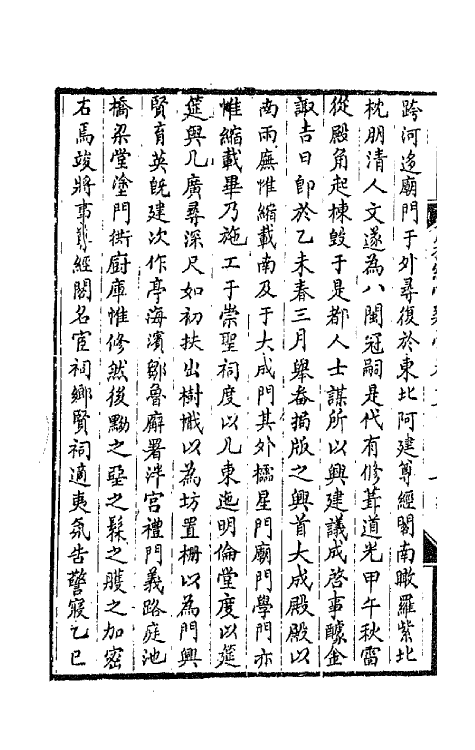 跨河迻廟門于外尋復於東北阿建尊經閣南瞰羅紫北
枕朋清人文遂為八閩冠嗣是代有修葺道光甲午秋雷
從殿角起棟毀于是都人士謀所以興建議成啓事醵金
諏吉日卽於乙未春三月舉畚挶版之興首大成殿殿以
南兩廡惟縮載南及于大成門其外櫺星門廟門學門亦
惟縮載畢乃施工于崇聖祠度以几東迤明倫堂度以筵
筵與几廣尋深尺如初扶出樹幟以為坊置柵以為門興
賢育英旣建次作亭海濱鄒魯廨署泮宮禮門義路庭池
橋梁堂塗門衖廚庫惟修然後黝之堊之髹之雘之加密
石焉竣將事尊經閣名宦祠鄉賢祠適夷氛告警寢乙巳